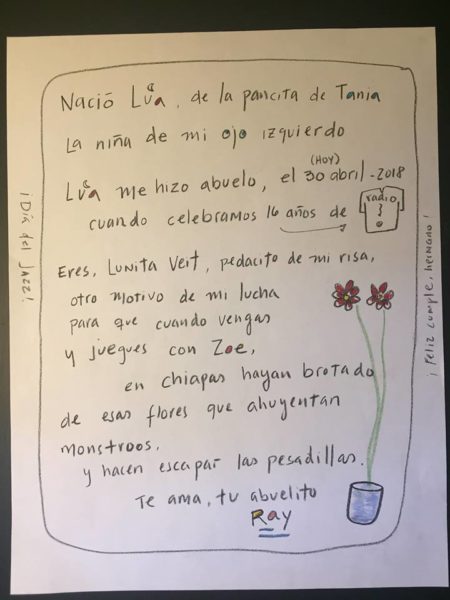 Nació Lũa, de la pancita de Tania
La niña de mi ojo izquierdo
(HOY)
Lũa me hizo abuelo, el 30 abril - 2018
cuando celebramos 16 años de radio
Eres, Lunita Vert, pedacito de mi risa,
otro motivo de mi lucha
para que cuando vengas
y juegues con Zoe,
en chiapas hayan brotado
de esas flores que ahuyentan
monstroos,
y hacen escapar las pesadillas.
Te ama, tu abuelito
Ray
¡Día del Jazz!
¡Feliz cumple, hermano!